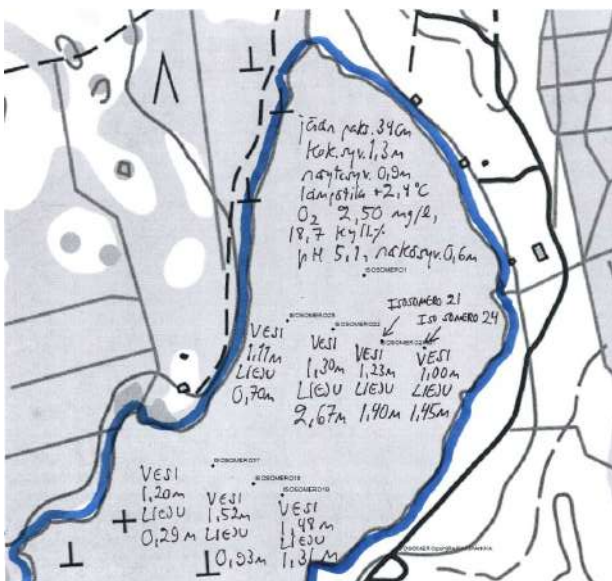 jään paks. 34cm
kok.syv. 1,3m
näytesyv. 0,9m
lämpötila +2,4°C
O2 2,50 mg/l,
18,7 kyll.%
pH 5,1, näkösyv. 0,6m
ISOSOMERO1
ISOSOMERO 21
ISO SOMERO 24
ISOSOMERO22
VESI
1,11m
LIEJU
0,70m
VESI
1,30m
LIEJU
2,67m
VESI
1,23m
LIEJU
1,40m
VESI
1,00m
LIEJU
1,45m
ISOSOMERO17
ISOSOMERO18
ISOSOMERO19
VESI
1,20m
LIEJU
0,29m
VESI
1,52m
LIEJU
0,93m
VESI
1,48m
LIEJU
1,31m